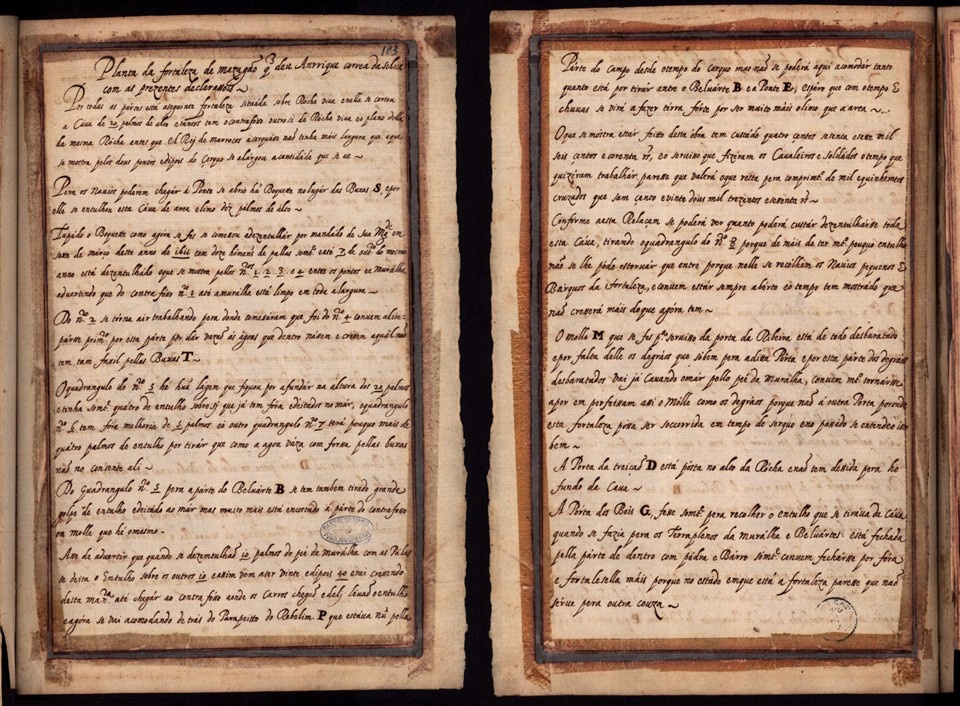 103
Planta da fortaleza de mazagão q̃ deu Anrrique correa da silua
com as prezentes declarasois ~
Por todas as partes está aseguinte fortaleza situada sobre Rocha viua enella se cortou
a Caua de 20 palmos de alto etantos tem o contrafosso outrosi de Rocha viua eo plano della
da mesma Rocha antes que el Rej de marrocos acerquasse não tinha mais largura que aque
se mostra pelos deus pontos edipois do Çerquo se alargou acantidade que se ue ~
Pera os Nauios poderem chegar á Ponte se abrio hũ Boquete no lugar das Buxas S, epor
elle se entulhou esta Caua de area elimo dez palmos de alto ~
Tapado o Boquete como agora se fes se comesou adezentulhár por mandado de Sua Mg.de em
sete de março deste anno de 1611 com doze homẽns de pallas som.te até 7 de out.ro do mesmo
anno está dezentulhado oque se mostra pellos n.os 1. 2. 3. e 4 entre os pontos ea Muralha
aduertindo que do contrafosso n.º 1 até amuralha está limpo em toda a largura ~
Do n.º 2 se torna air trabalhando pera donde comesáram que foi do n.º 4 conuem alim=
párse prim.ro por esta párte per dár vazaõ ás ágoas que dentro násem e creçem aquál não
tem tam fasil pellas Buxas T ~
O quadrangulo do n.º 5 he huã lágem que fiquou por afundár na altura dos 20 palmos
etinha som.te quátro de entulho sobre si que já tem fóra editados no már, oquadrangulo
n.º 6 tem fóra melhoria de 5 palmos eo outro quadrangulo n.º 7 terá pouquo mais de
quátro palmos de entulho por tirár que como a agoa váza com forsa pellas buxas
não no consente ali ~
Do Quadrangulo n.º 5 pera aparte do Beluárte B se tem tambem tirado grande
golpe de entulho editado ao már mas muito mais está encostado á párte do contrafosso
ou molle que hé omesmo -
Asse de aduertir que quando se dezentulhaõ 10 palmos do pé da murálha com as Pállas
se deita o Entulho sobre os outros 10 eassim vem ater vinte edipois 40 euai crecendo
desta man.ra até chegár ao contrafosso aonde os Carros chegaõ edalj leuaõ oentulho
eagora se vai acomodando de trás do Parapeitto do Rebelim P que estáua nũ pella
Párte do campo desde otempo do Çerquo mas não se poderá aqui acomodár tanto
quanto está por tirár entre o Beluárte B ea Ponte E, espéro que com otempo E
chuuas se virá afazer tirra fórte por ser muito máis olimo que aárea ~
Oque se móstra estár feitto desta óbra tem custádo quatro çentos sesenta esete mil
seis centos e corenta rs, eo seruiso que fizéram os Caualeiros e Soldádos otempo que
quizéram trabalhár paresse que valerá oque résta pera comprim.to de mil equinhentos
cruzados que sam çento evinte dous mil trezentos esesenta rs ~
Conforme aesta Relaçam se poderá ver quanto poderá custár dezentulharse toda
esta Cáua, tirando oquadrangulo do n.º 8 porque de máis de ter m.to pouquo entulho
não se lhe póde estoruár que entre porque nelle se recolhem os Nauios pequenos E
Bárquos da fortaleza, econuem estár sempre abérto eo tempo tem mostrádo que
não creserá máis do que agóra tem ~
O molle M que se fes p.ª seruisso da porta da Ribeira está de todo desbaratado
epor falta delle os degráos que sóbem pera aditta Pórta epor esta párte dos degráos
desbaratádos vai já cauando omár pello pé da Murálha, conuem m.to tornárse
apor em perfeisam asi o Mólle como os degráos porque não á outra Porta poronde
esta fortaleza póssa ser soccorrida em tempo de serquo eno pasádo se entendeo isto
bem ~
A Pórta da treicaõ D está pósta no alto da Rócha enaõ tem dessida pera ho
fundo da Caua ~
A Pórta dos Bois G, fesse som.te pera recolher o entulho que se tiráua da Cáua
quando se fazia pera os Terraplenos da murálha e Beluártes: está fecháda
pella párte de dentro com pédra e Bárro som.te conuem fechárse por fóra
e fortalesella máis porque no estádo emque está a fortaleza paresse que naõ
sérue pera outra couza ~